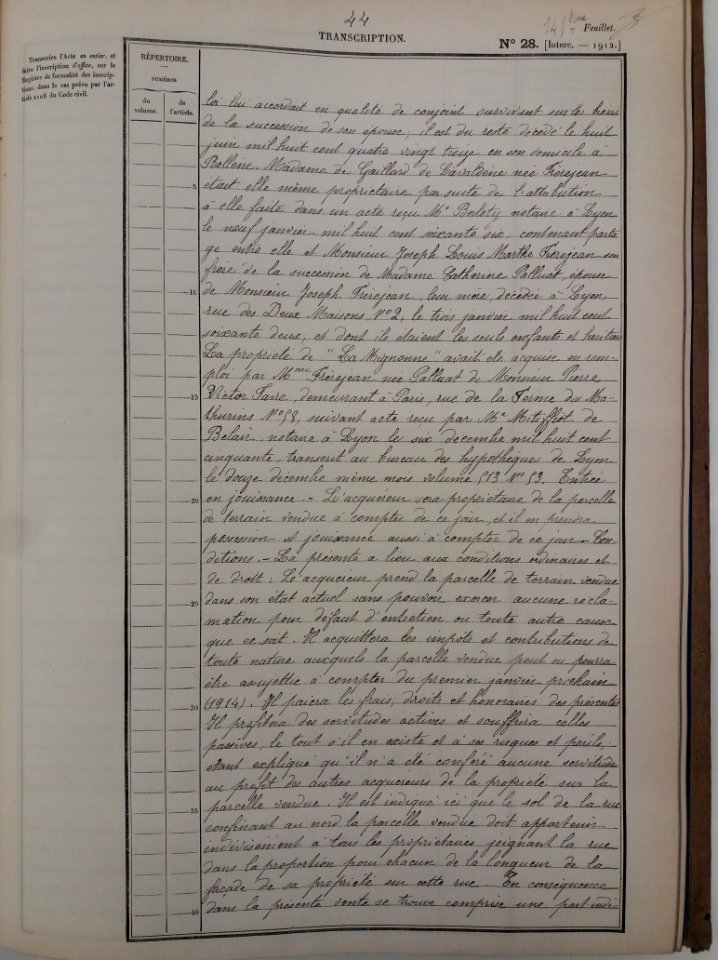 44
145ème Feuillet.
TRANSCRIPTION.
N° 28. [Interc. — 1912.]
Transcrire l'Acte en entier, et
faire l'inscription d'office, sur le
Registre de formalité des inscrip-
tions, dans le cas prévu par l'ar-
ticle 2108 du Code civil.
RÉPERTOIRE.
NUMÉROS
du volume.
de l'article.
loi lui accordait en qualité de conjoint survivant sur les biens
de la succession de son épouse, il est du reste décédé le huit
juin mil huit cent quatre vingt treize en son domicile à
Bollène. Madame de Gaillard de Lavaldène née Frèrejean
5 était elle même propriétaire par suite de l'attribution
à elle faite dans un acte reçu Me Berloty notaire à Lyon
le neuf janvier mil huit cent soixante six, contenant parta
ge entre elle et Monsieur Joseph Louis Marthe Frèrejean son
frère de la succession de Madame Catherine Palluat, épouse
10 de Monsieur Joseph Frèrejean, leur mère, décédée à Lyon,
rue des Deux Maisons N° 2, le trois janvier mil huit cent
soixante deux, et dont ils étaient les seuls enfants et héritiers
La propriété de "La Mignonne" avait été acquise en rem-
ploi par Mme Frèrejean née Palluat de Monsieur Pierre
15 Victor Farre, demeurant à Paris, rue de la Ferme des Ma-
thurins N° 53, suivant acte reçu par Me Mitiffiot de
Bélair, notaire à Lyon le six décembre mil huit cent
cinquante, transcrit au bureau des hypothèque de Lyon
le douze décembre même mois volume 513 N° 53. Entrée
20 en jouissance. - L'acquéreur sera propriétaire de la parcelle
de terrain vendue à compter de ce jour, et il en prendra
possession et jouissance aussi à compter de ce jour - Con-
ditions. - La présente a lieu aux conditions ordinaires et
de droit : L'acquéreur prend la parcelle de terrain vendue
25 dans son état actuel sans pouvoir exercer aucune récla-
mation pour défaut d'entretien ou toute autre cause
que ce soit. Il acquittera les impôts et contributions de
toute nature auxquels la parcelle vendue peut ou pourra
être assujettie à compter du premier janvier prochain
30 (1914). Il paiera les frais, droits et honoraires des présentes
Il profitera des servitudes actives et souffrira celles
passives, le tout s'il en existe et à ses risques et périls,
étant expliqué qu'il n'a été conféré aucune servitude
au profit des autres acquéreurs de la propriété sur la
35 parcelle vendue. Il est indiqué ici que le sol de la rue
confinant au nord la parcelle vendue doit appartenir
indivisément à tous les propriétaires joignant la rue
dans la proportion pour chacun de la longueur de la
façade de sa propriété sur cette rue. En conséquence
40 dans la présente vente se trouve comprise une part indi-